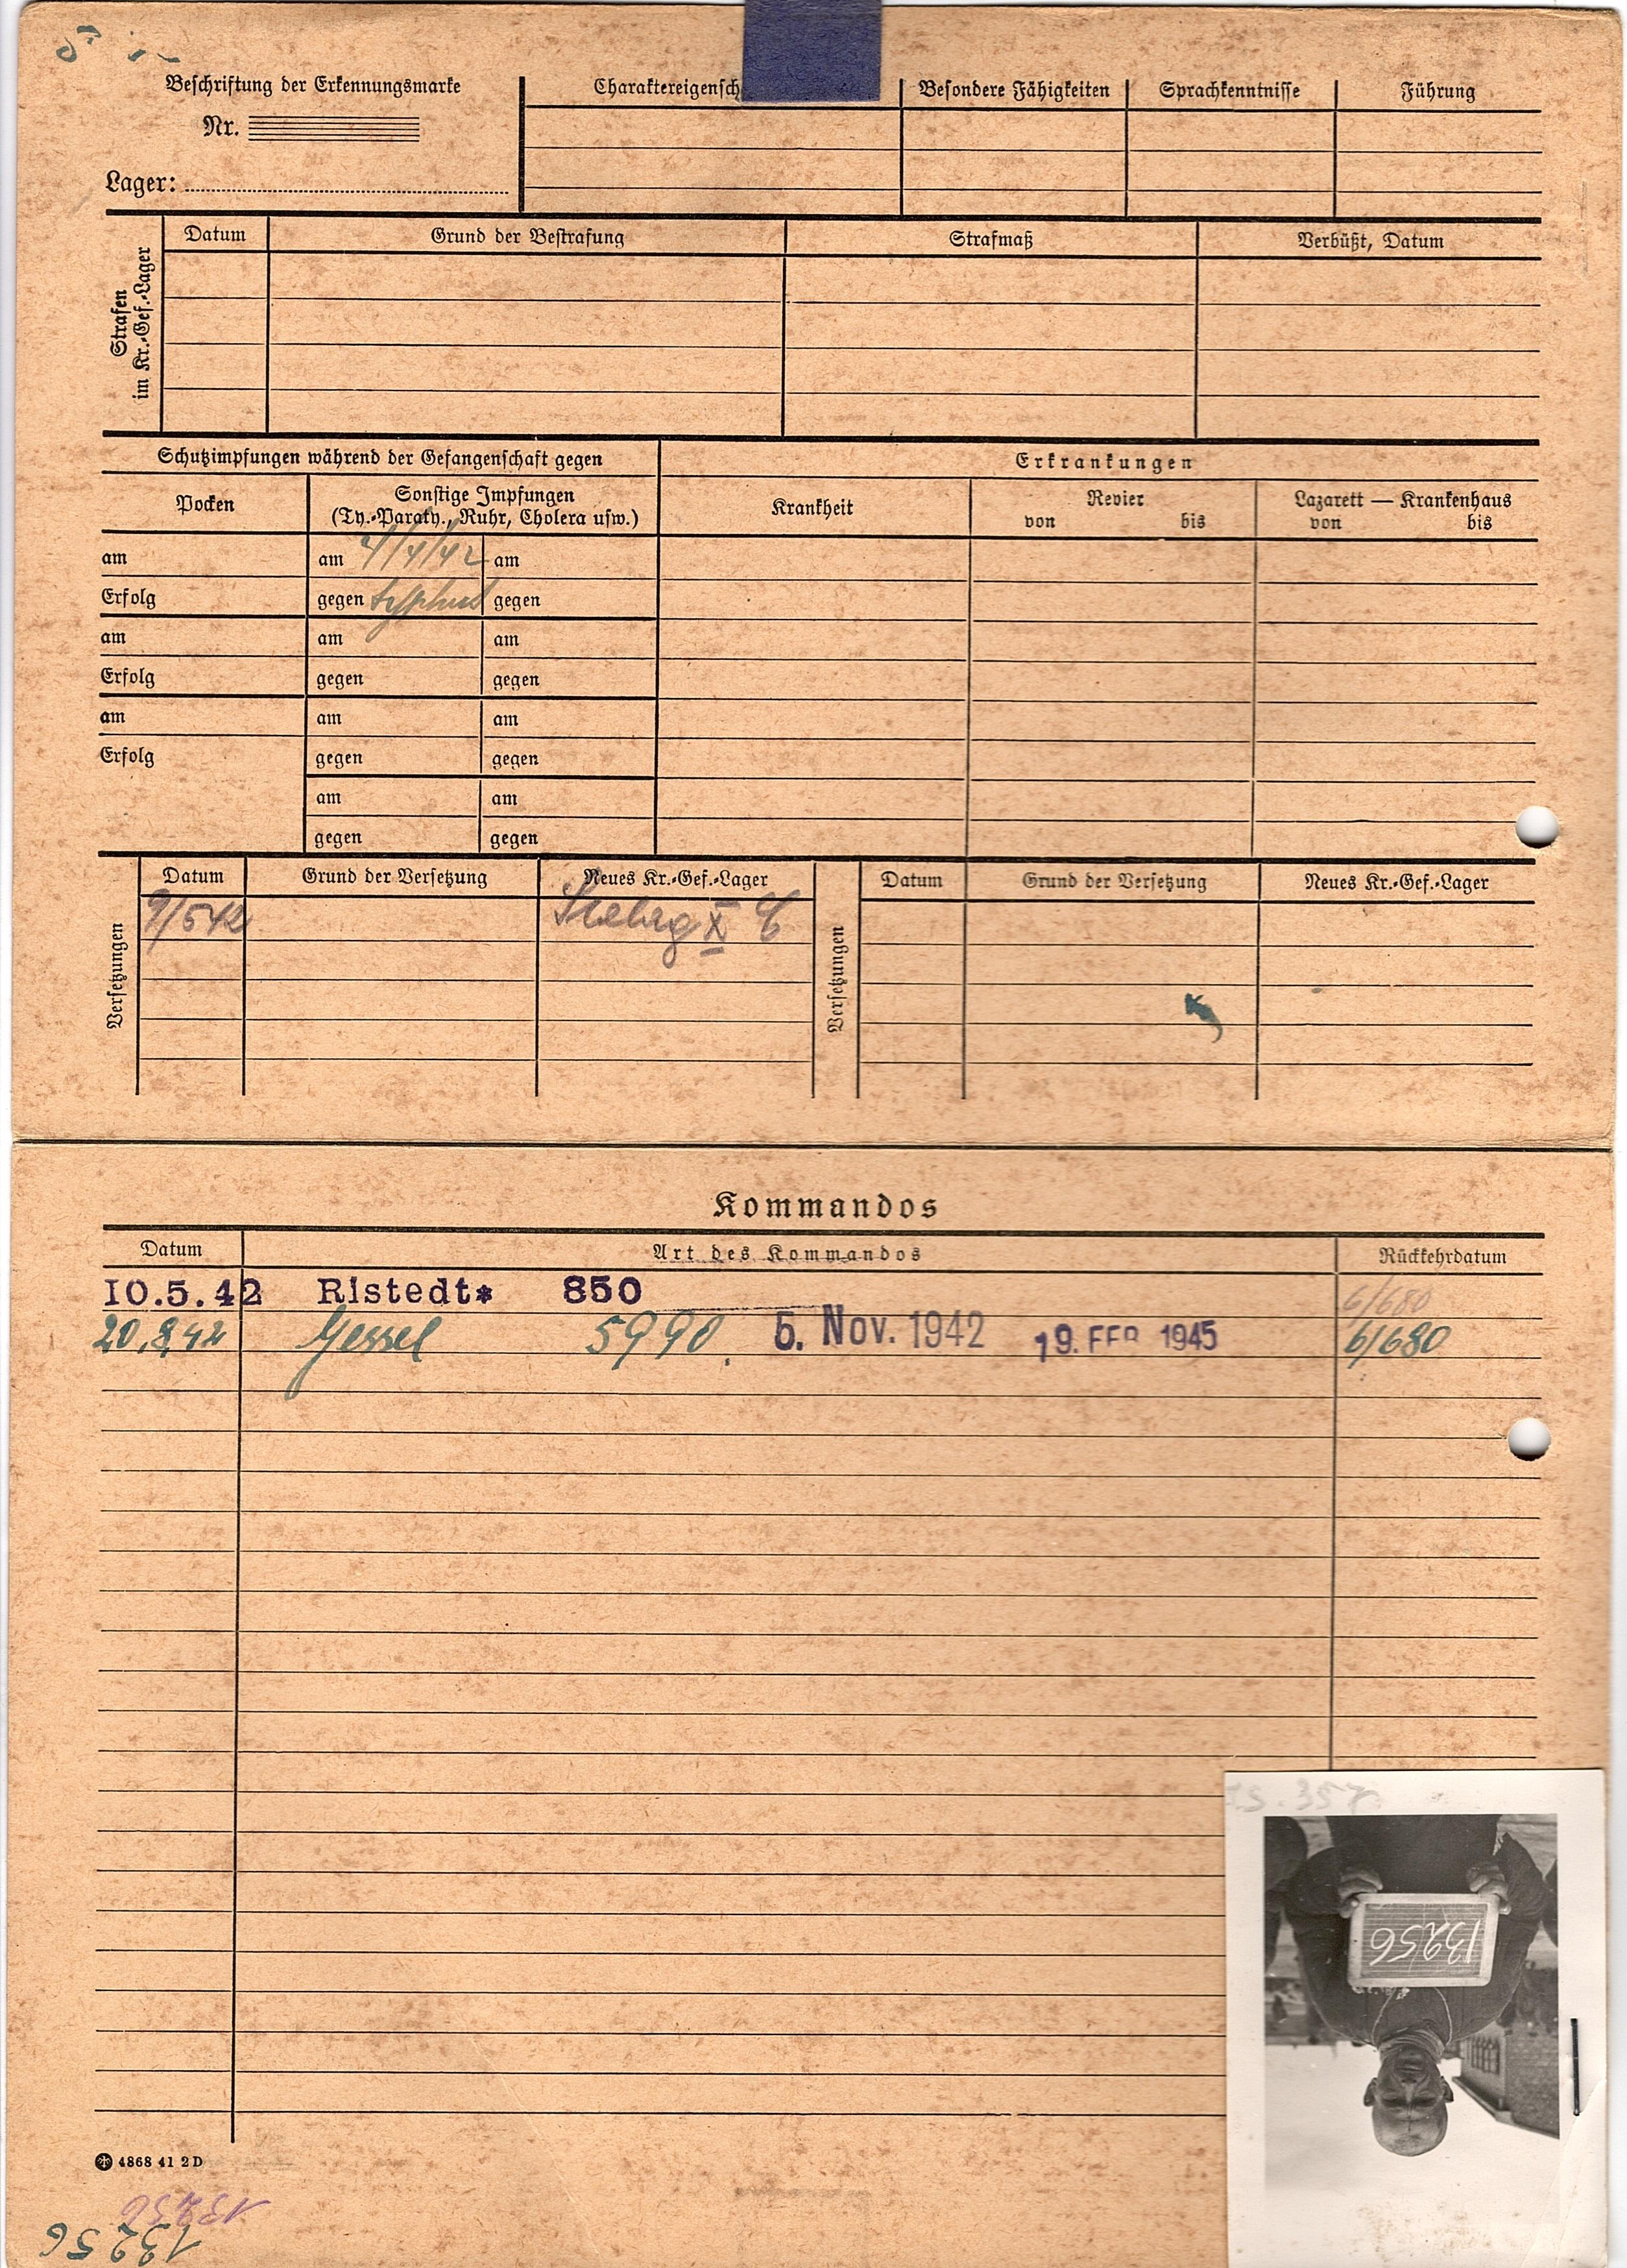 Beschriftung der Erkennungsmarke
Nr.
Lager:
Charaktereigensch
Besondere Fähigkeiten
Sprachkenntnisse
Führung
Strafen
im Kr.-Gef.-Lager
Datum
Grund der Bestrafung
Strafmaß
Verbüßt, Datum
Schutzimpfungen während der Gefangenschaft gegen
Erkrankungen
Pocken
Sonstige Impfungen
(Ty.-Paraty., Ruhr, Cholera usw.)
Krankheit
Revier
von bis
Lazarett — Krankenhaus
von bis
am am 4/4/42 am
Erfolg gegen typhus gegen
am am am
Erfolg gegen gegen
am am am
Erfolg gegen gegen
am am
gegen gegen
Versetzungen
Datum Grund der Versetzung Neues Kr.-Gef.-Lager
9/5 42 X C
Versetzungen
Datum Grund der Versetzung Neues Kr.-Gef.-Lager
Kommandos
Datum Art des Kommandos Rückkehrdatum
10.5.42 Ristedt* 850 6/680
20.8.42 Jessel 5990. 5. Nov. 1942 19. FEB 1945 6/680
13256
4868 41 2 D
13256
13256